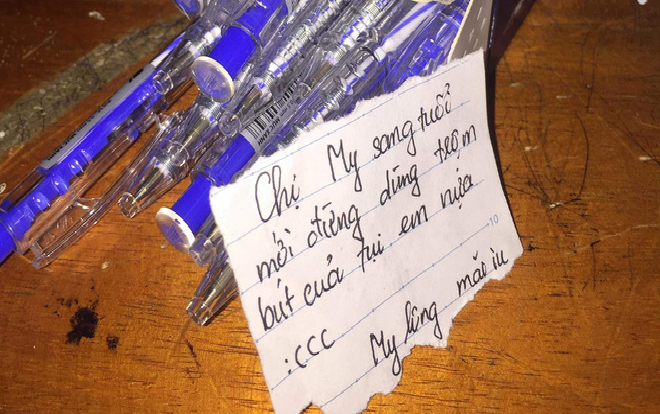 Chị My sang tuổi
mới đừng dùng trộm
bút của tui em nữa
:CCC
My lũng mãi iu
10